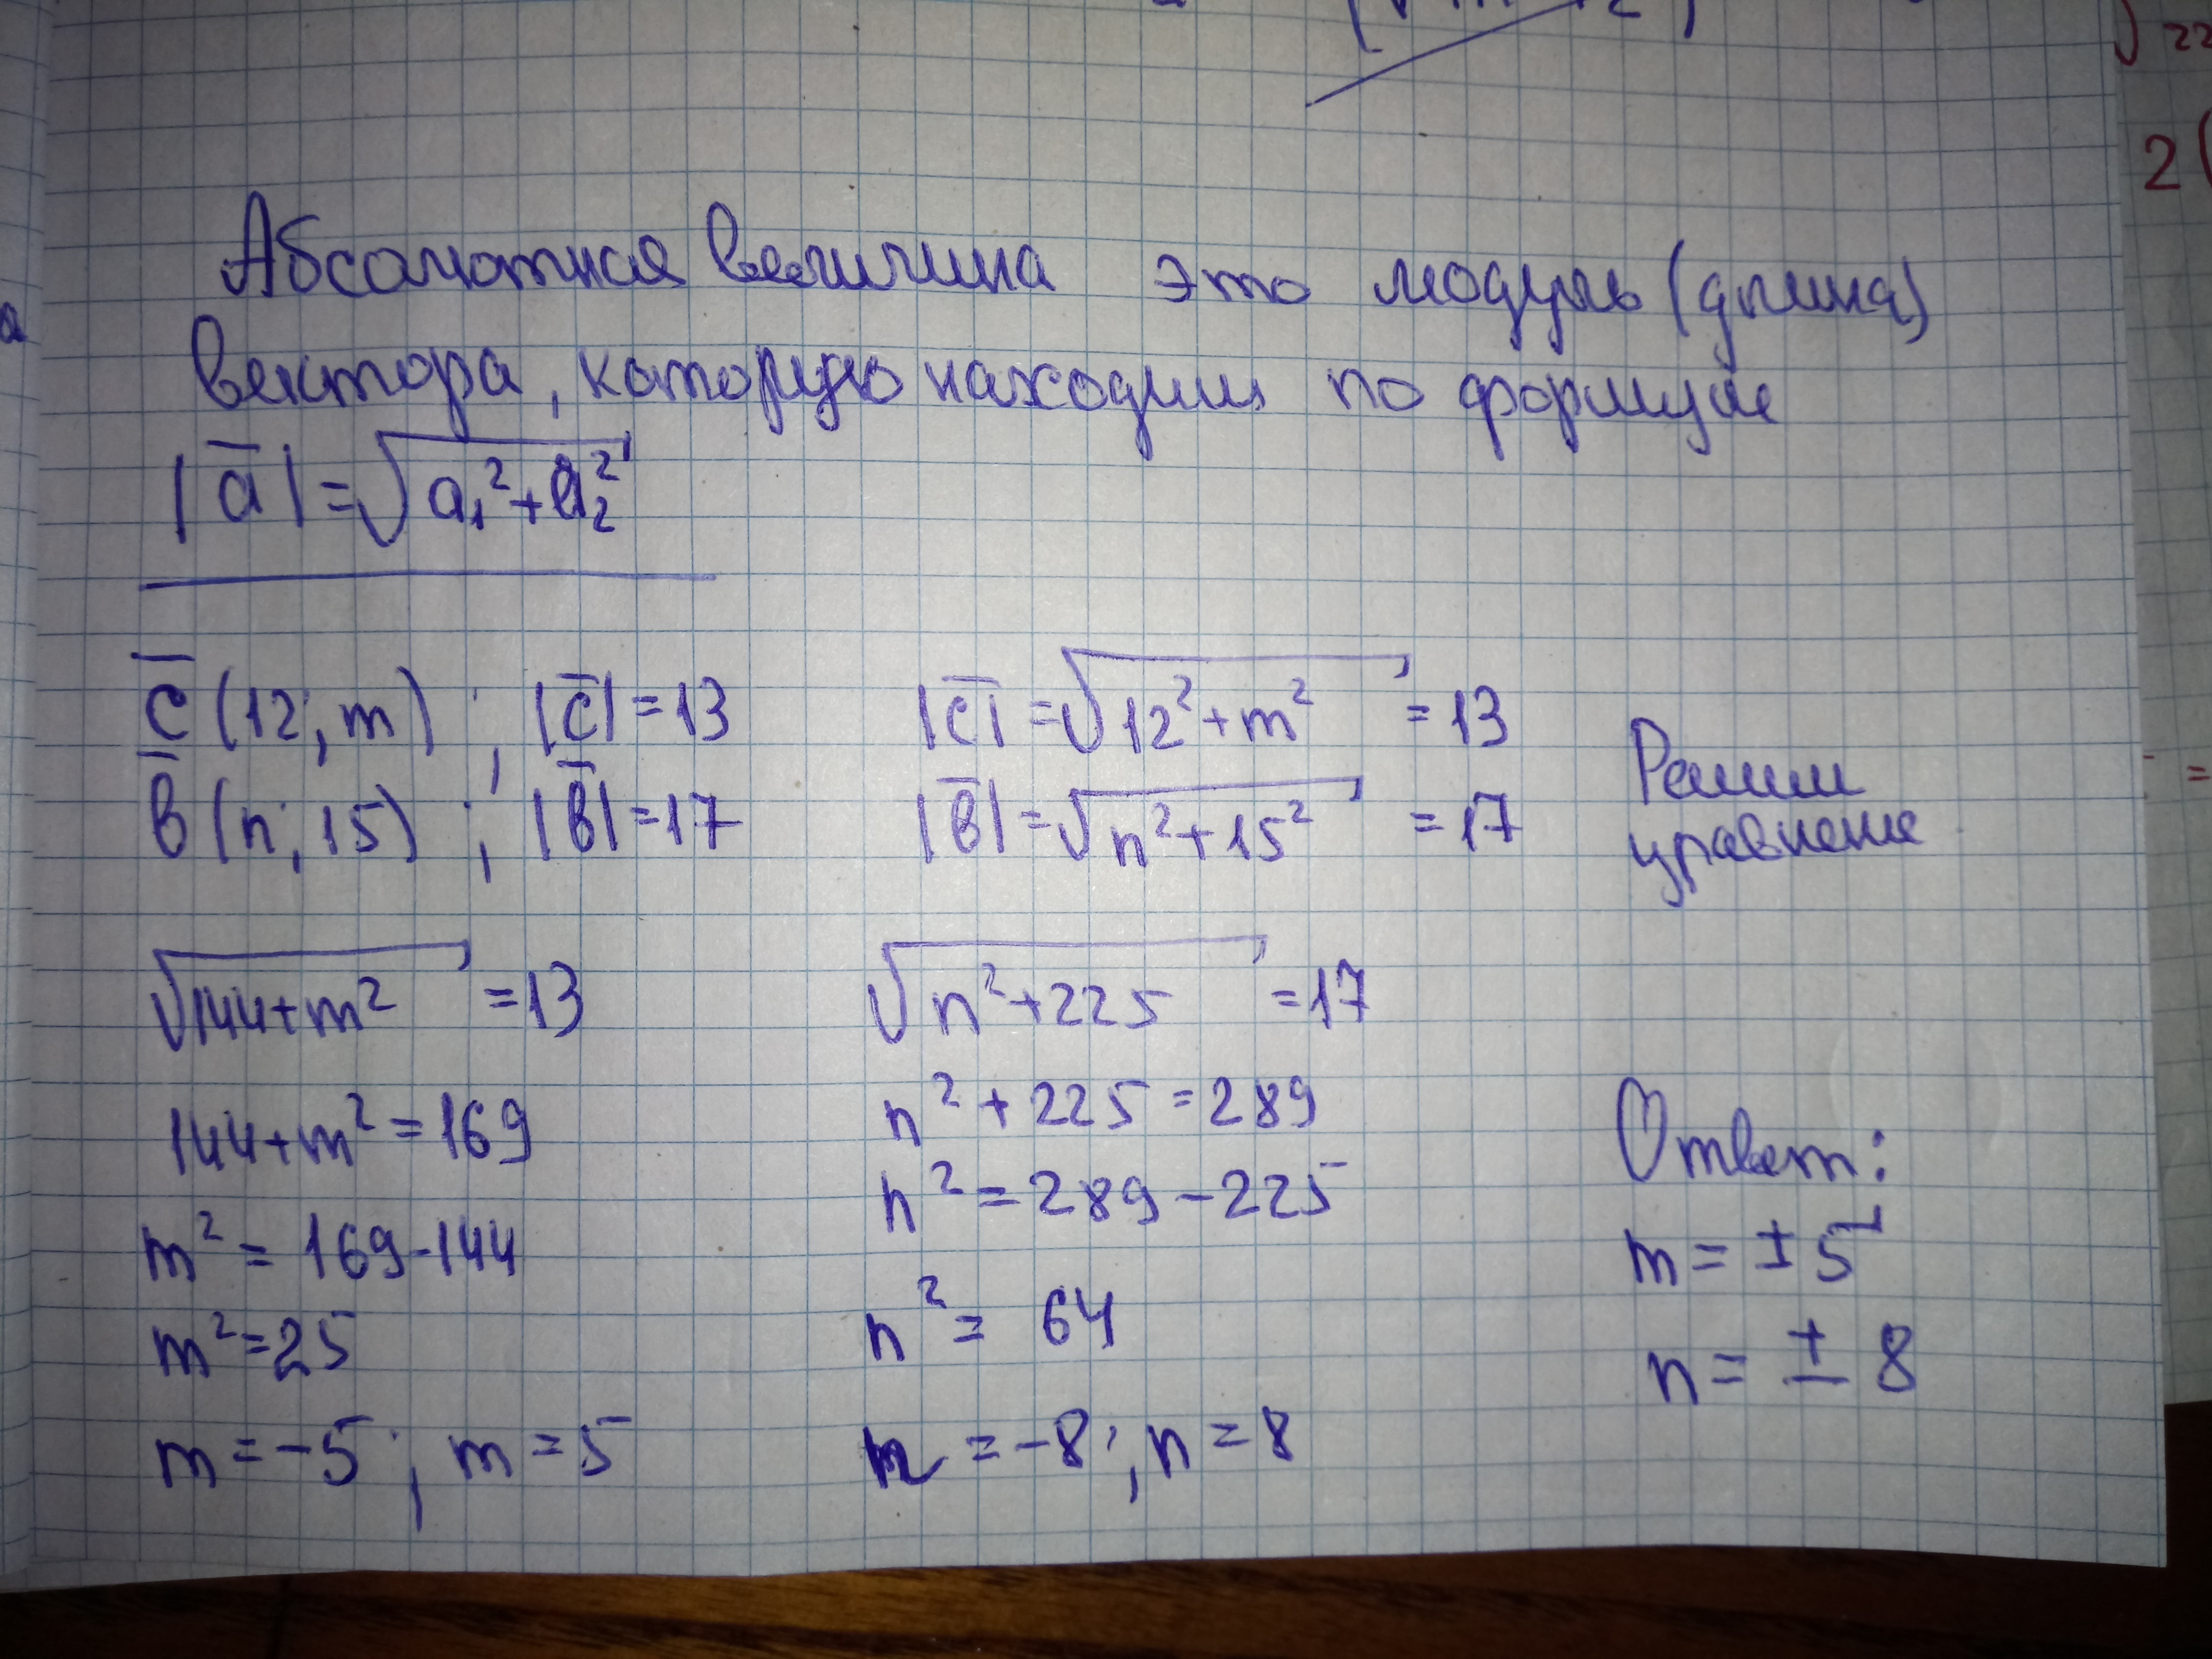 Абсолютная величина это модуль (длина)
вектора, которую находим по формуле
|a̅| = √(a₁² + a₂²)
c̅ (12; m) ; |c̅| = 13
|c̅| = √(12² + m²) = 13
b̅ (n; 15) ; |b̅| = 17
|b̅| = √(n² + 15²) = 17
Решим
уравнение
√(144 + m²) = 13
144 + m² = 169
m² = 169 - 144
m² = 25
m = -5 ; m = 5
√(n² + 225) = 17
n² + 225 = 289
n² = 289 - 225
n² = 64
n = -8 ; n = 8
Ответ:
m = ± 5
n = ± 8
22
2(
=